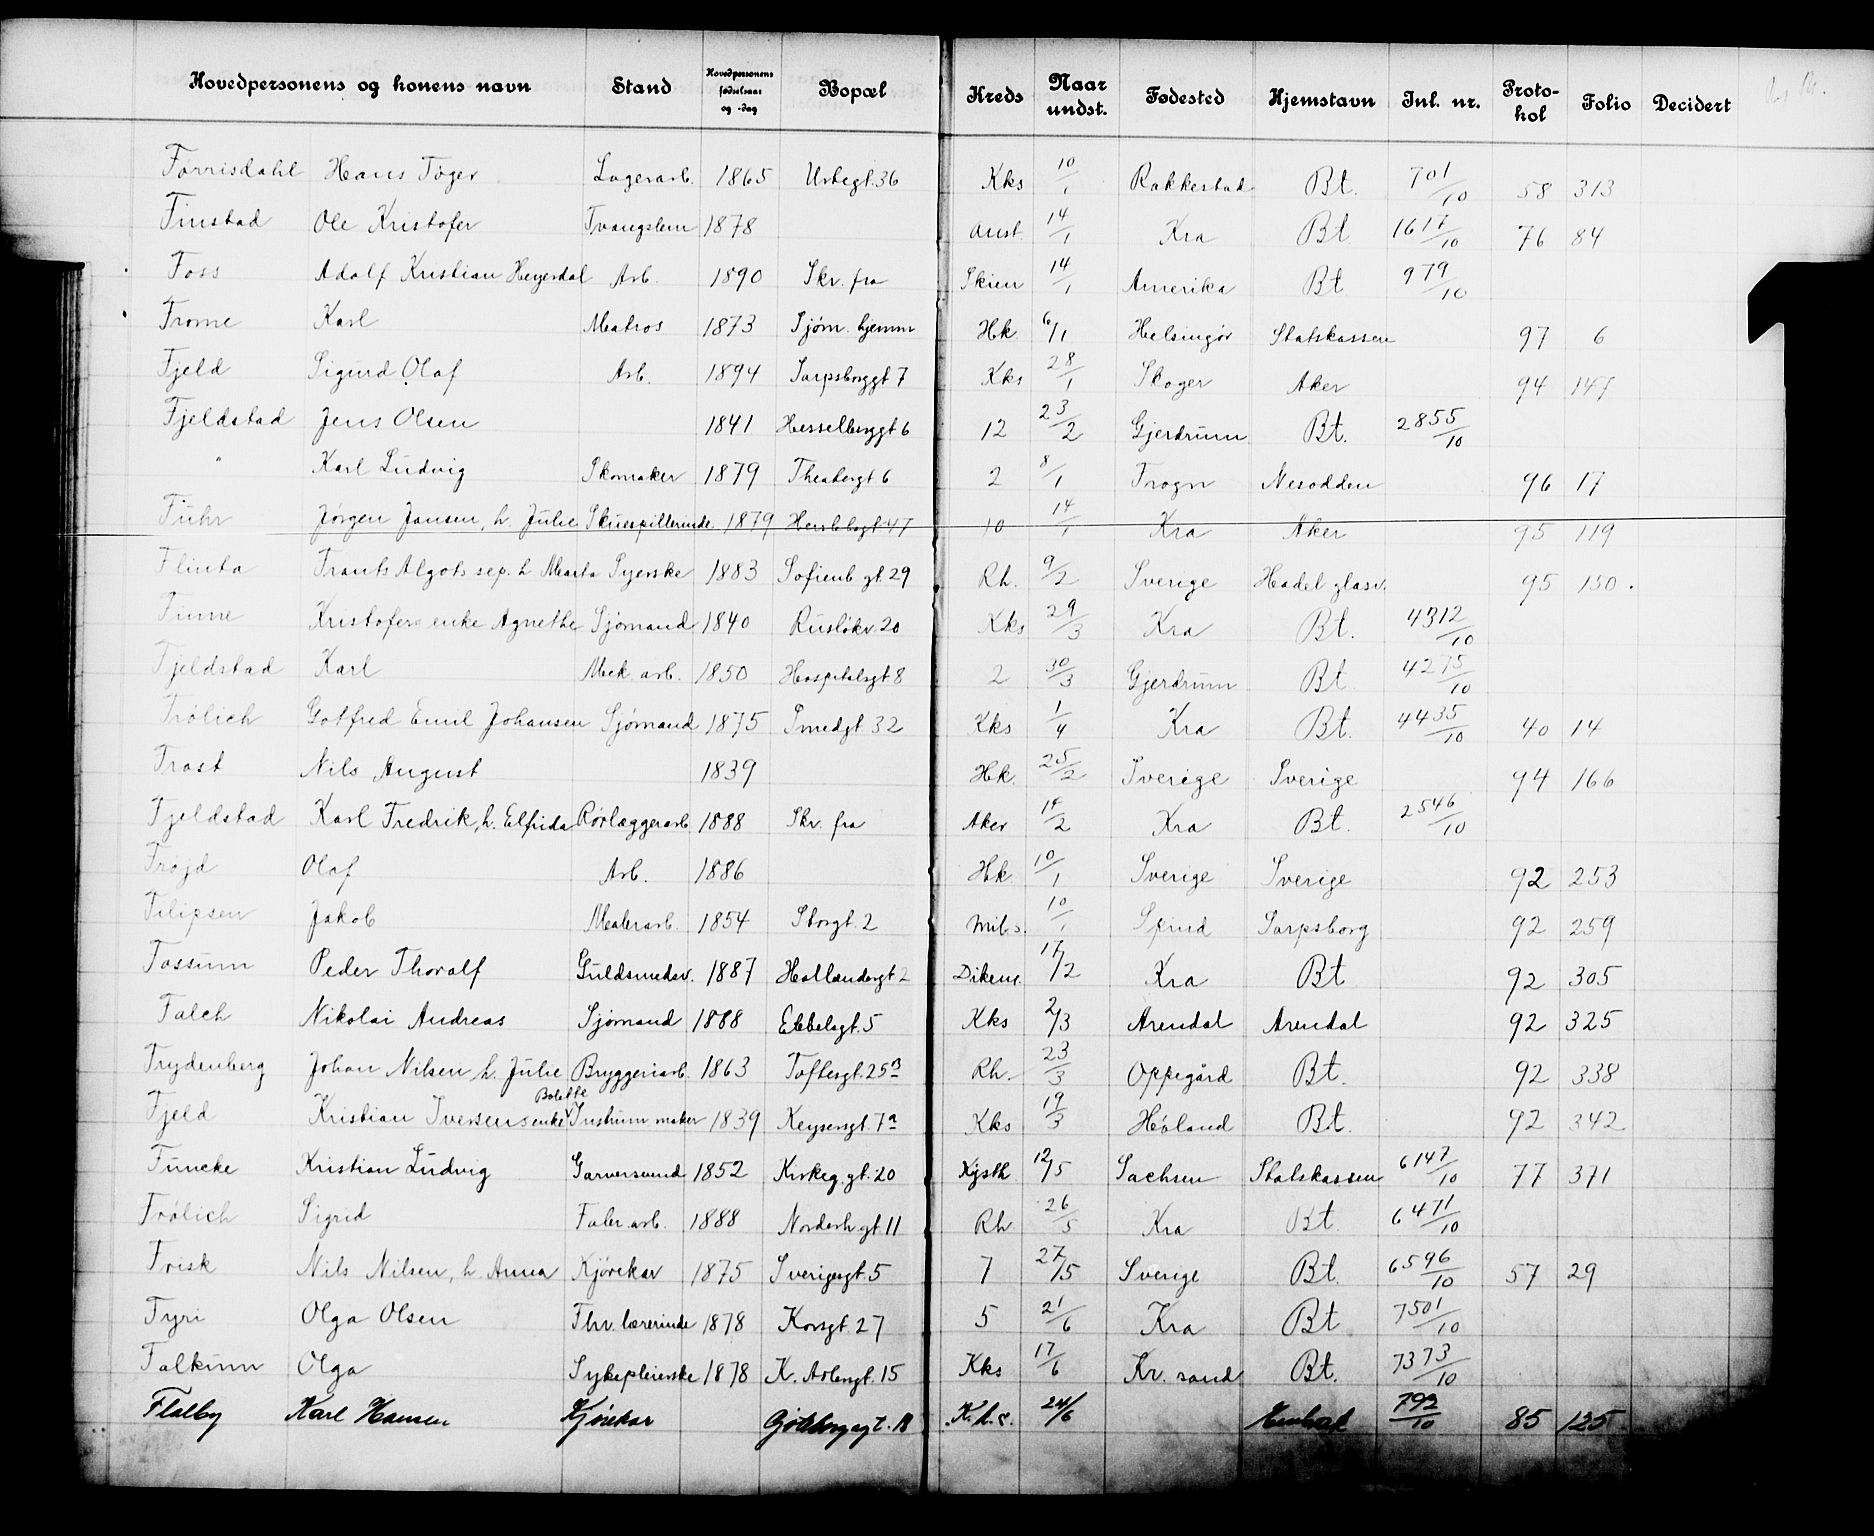 Hovedpersonens og konens navn Stand Hovedpersonens fødselsaar og -dag Bopæl Kreds Naar undst. Fødested Hjemstavn Inl. nr. Protokol Folio Decidert
Førrisdahl Hans Tøger Lagerarb. 1865 Urtegt. 36 Kks 10/1 Rakkestad Bt. 701/10 58 313
Finstad Ole Kristofer Tvangslem 1878 Anst. 14/1 Kra Bt 1617/10 76 84
Foss Adolf Kristian Heyerdal Arb. 1890 Skr. fra Skien 14/1 Amerika Bt 979/10
Frome Karl Matros 1873 Sjøm. hjemm Hk. 6/1 Helsingør Statskassen 97 6
Fjeld Sigurd Olaf Arb. 1894 Sarpsborggt 7 Kks 28/1 Skoger Aker 94 147
Fjeldstad Jens Olsen 1841 Hesselberggt 6 12 23/2 Gjerdrum Bt. 2855/10
" Karl Ludvig Skomaker 1879 Theatergt 6 2 8/1 Frogn Nesodden 96 17
Fuhr Jørgen Jansen, h. Julie Skuespillerinde 1879 Herslebsgt 47 10 14/1 Kra Aker 95 119
Flinta Frants Algots sep. h. Marta Syerske 1883 Sofienb gt. 29 Rh. 9/2 Sverige Hadel glasv. 95 150.
Finne Kristofers enke Agnethe Sjømand 1840 Rusløkv 20 Kks 29/3 Kra Bt. 4312/10
Fjeldstad Karl Mek. arb. 1850 Hospitalsgt 8 2 30/3 Gjerdrum Bt 4275/10
Frølich Gotfred Emil Johansen Sjømand 1875 Smedgt. 32 Kks 1/4 Kra Bt. 4435/10 40 14
Frost Nils August 1839 Hk. 25/2 Sverige Sverige 94 166
Fjeldstad Karl Fredrik, h. Elfrida Rørlæggerarb 1888 Skr. fra Aker 14/2 Kra Bt. 2546/10
Frøjd Olaf Arb. 1886 Hk. 10/1 Sverige Sverige 92 253
Filipsen Jakob Malerarb. 1854 Storgt. 2 Mil. s. 10/1 Spind Sarpsborg 92 259
Fossum Peder Thoralf Guldsmedsv. 1887 Hollændergt 2 Dikem. 17/2 Kra Bt 92 305
Falch Nikolai Andreas Sjømand 1888 Ebbelsgt. 5 Kks 2/3 Arendal Arendal 92 325
Frydenberg Johan Nilsen, h. Julie Bryggeriarb. 1863 Toftesgt. 25 B Rh. 23/3 Oppegård Bt. 92 338
Bolette
Fjeld Kristian Iversens enke Instrum maker 1839 Keysersgt. 7 a Kks 19/3 Høland Bt. 92 342
Funcke Kristian Ludvig Garversvend 1852 Kirkeg. gt. 20 Kysth 12/5 Sachsen Statskassen 6147/10 77 371
Frølich Sigrid Fabr. arb. 1888 Norderh. gt. 11 Rh 26/5 Kra Bt. 6471/10
Frisk Nils Nilsen, h. Anna Kjørekar 1875 Sverigesgt. 5 7 27/5 Sverige Bt. 6596/10 57 29
Fyri Olga Olsen Fhv. lærerinde 1878 Korsgt. 27 5 21/6 Kra Bt 7501/10
Falkum Olga Sykepleierske 1878 K. Astengt. 15 Kks 17/6 Kr. sand Bt. 7373/10
Flatby Karl Hansen Kjørekar Gøteborggt. 18 K.k.s. 24/6 792/10 85 125